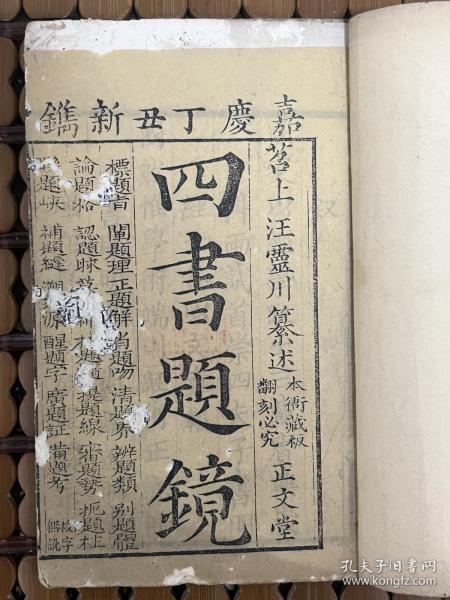 嘉慶丁丑新鐫
苕上汪靈川纂述
本衙藏板
翻刻必究
正文堂
四書題鏡
標題旨 闡題理 正題解 肖題吻 清題界 辨題類 別題體
論題格 認題脉 提題線 審題勢 扼題柱
題峽 補題縫 溯 源 醒題字 廣題証 備題考
校字
無訛
孔夫子旧书网
www.kongfz.com